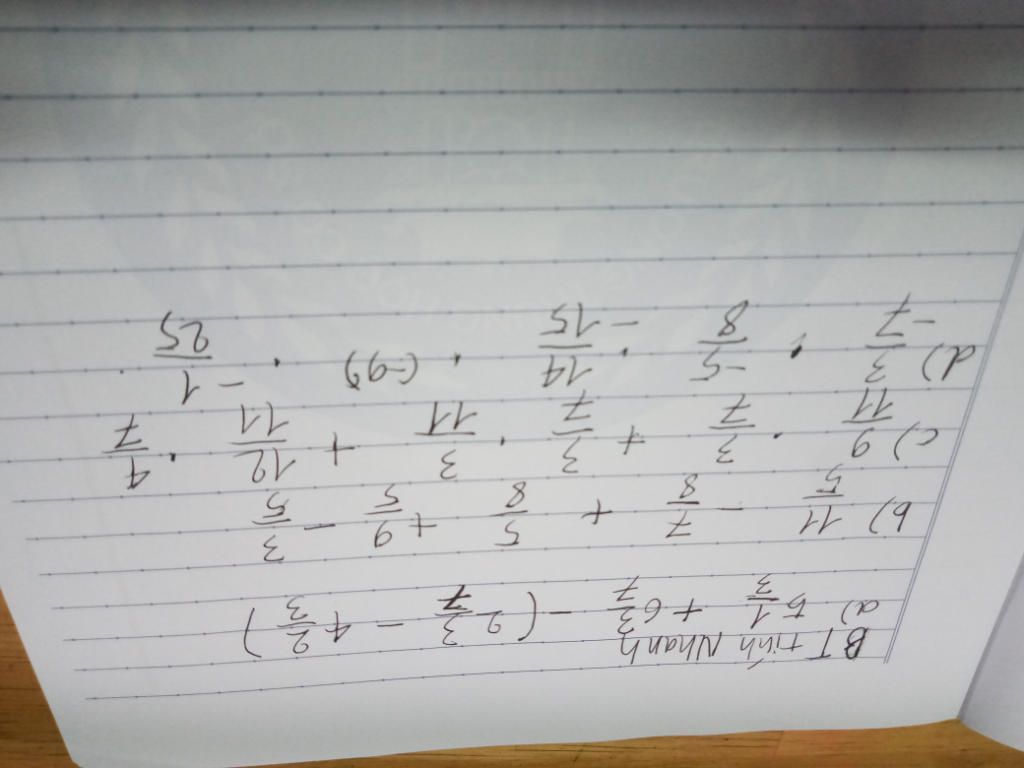 BT tính Nhanh
a) 5 1/3 + 6 3/7 - (2 3/7 - 4 2/3)
b) 11/5 - 7/8 + 5/8 + 9/5 - 3/5
c) 9/11 . 3/7 + 3/7 . 3/11 + 12/11 . 4/7
d) 3/-7 . -5/8 . 14/-15 . . -1/25